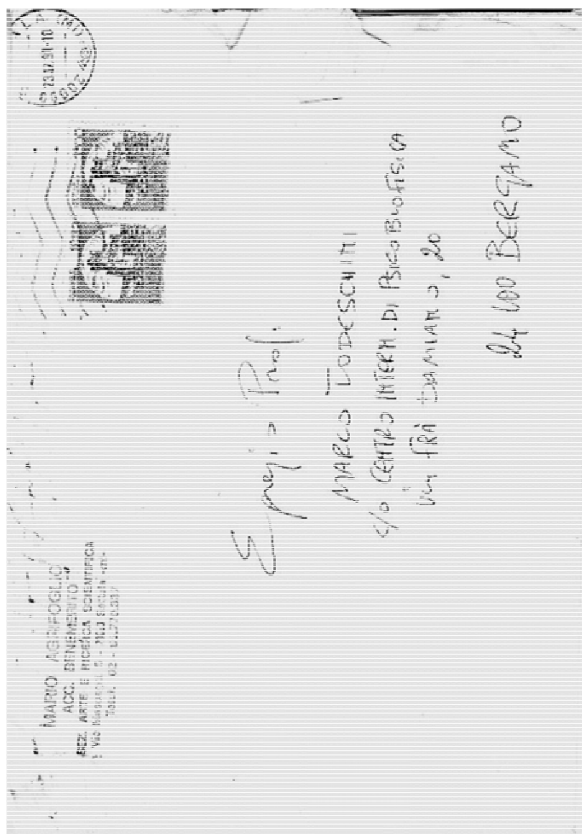 MARIO AGRIFOGLIO
ACC. BENEMERITO
SEZ. ARTE E RICERCA SCIENTIFICA
Via
Telef. 02 -
Egregio Prof.
MARCO TODESCHINI
c/o CENTRO INTERN. DI PSICOBIOFISICA
Via FRÀ DAMIANO, 20
24100 BERGAMO